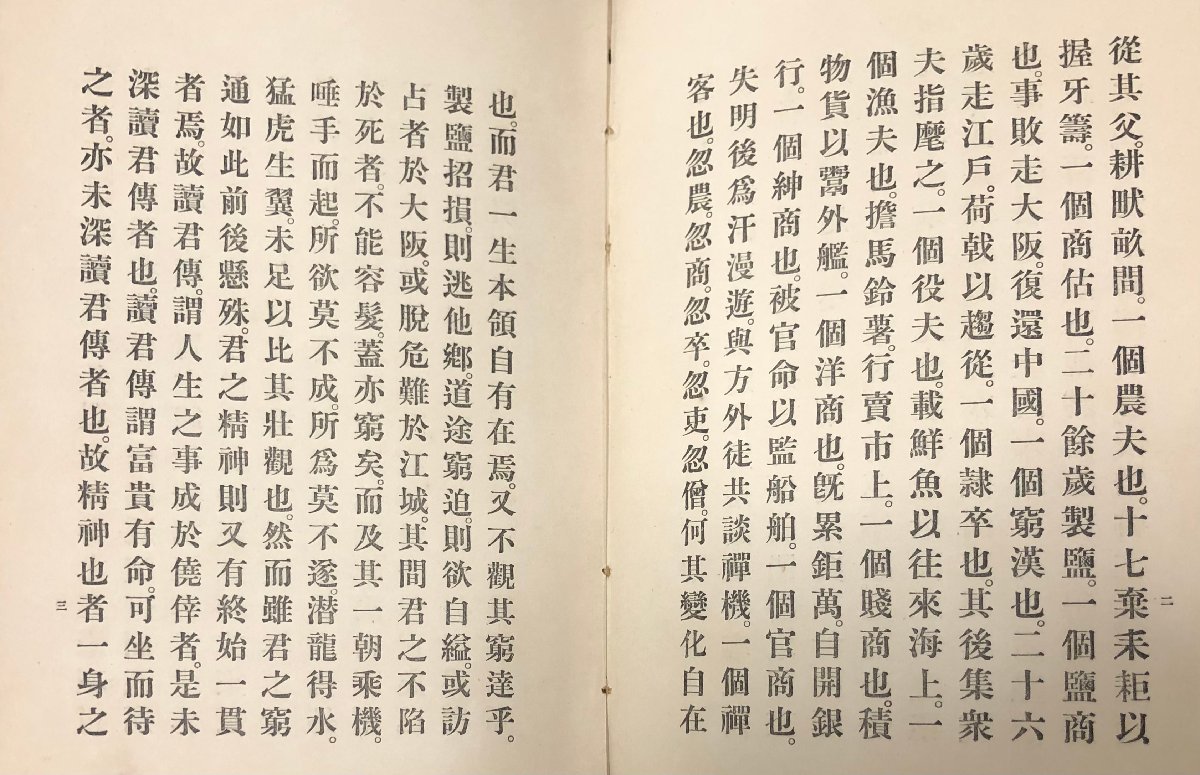 從其父。耕畎畝間。一個農夫也。十七棄耒耟以
握牙籌。一個商估也。二十餘歲製鹽。一個鹽商
也。事敗走大阪。復還中國。一個窮漢也。二十六
歲走江戶。荷戟以趨從。一個隷卒也。其後集衆
夫指麾之。一個役夫也。載鮮魚以往來海上。一
個漁夫也。擔馬鈴薯。行賣市上。一個賤商也。積
物貨以鬻外艦。一個洋商也。旣累鉅萬。自開銀
行。一個紳商也。被官命以監船舶。一個官商也。
失明後爲汗漫遊。與方外徒共談禪機。一個禪
客也。忽農。忽商。忽卒。忽吏。忽僧。何其變化自在
二
也。而君一生本領自有在焉。又不觀其窮達乎。
製鹽招損。則逃他鄕。道途窮迫。則欲自縊。或訪
占者於大阪。或脫危難於江城。其間君之不陷
於死者。不能容髮。蓋亦窮矣。而及其一朝乘機。
唾手而起。所欲莫不成。所爲莫不遂。潛龍得水。
猛虎生翼。未足以比其壯觀也。然而雖君之窮
通如此前後懸殊。君之精神則又有終始一貫
者焉。故讀君傳。謂人生之事成於僥倖者。是未
深讀君傳者也。讀君傳謂富貴有命。可坐而待
之者。亦未深讀君傳者也。故精神也者一身之
三